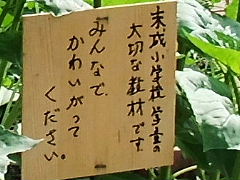 末成小学校学童の
大切な教材です。
みんなで、
かわいがって
ください。